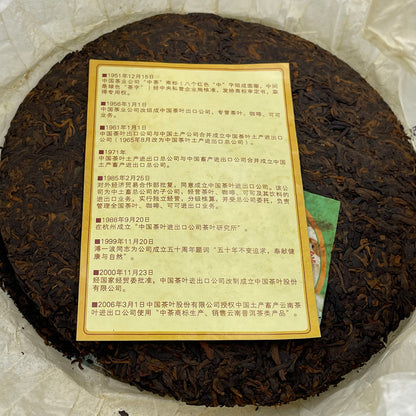 ■1951年12月15日
中国茶业公司“中茶”商标（八个红色“中”字组成圆圈，中间
是绿色“茶字”）经中央私营企业局核准，发给商标审定书，取
得专用权。
■1956年1月1日
中国茶业公司改组成中国茶叶出口公司，专营茶叶、咖啡、可可
业务。
■1961年1月1日
中国茶叶出口公司与中国土产公司合并成立中国茶叶土产进出口
公司（1965年8月改为中国茶叶土产进出口总公司）。
■1971年
中国茶叶土产进出口总公司与中国畜产进出口总公司合并成立中国土
产畜产进出口总公司。
■1985年2月25日
对外经济贸易合作部批复，同意成立中国茶叶进出口公司，该公
司为中土畜总公司的子公司，经营茶叶、咖啡、可可及其饮料的
进出口业务，实行独立经营，分级核算，并受总公司委托，负责
管理全国茶叶、咖啡、可可进出口业务。
■1988年9月20日
在杭州成立“中国茶叶进出口公司茶叶研究所”。
■1999年11月20日
溥一波同志为公司成立五十周年题词“五十年不变追求，奉献健
康与自然”。
■2000年11月23日
经国家经贸委批准，中国茶叶进出口公司改制成立中国茶叶股份
有限公司。
■2006年3月1日中国茶叶股份有限公司授权中国土产畜产云南茶
叶进出口公司使用“中茶商标生产、销售云南普洱茶类产品”。